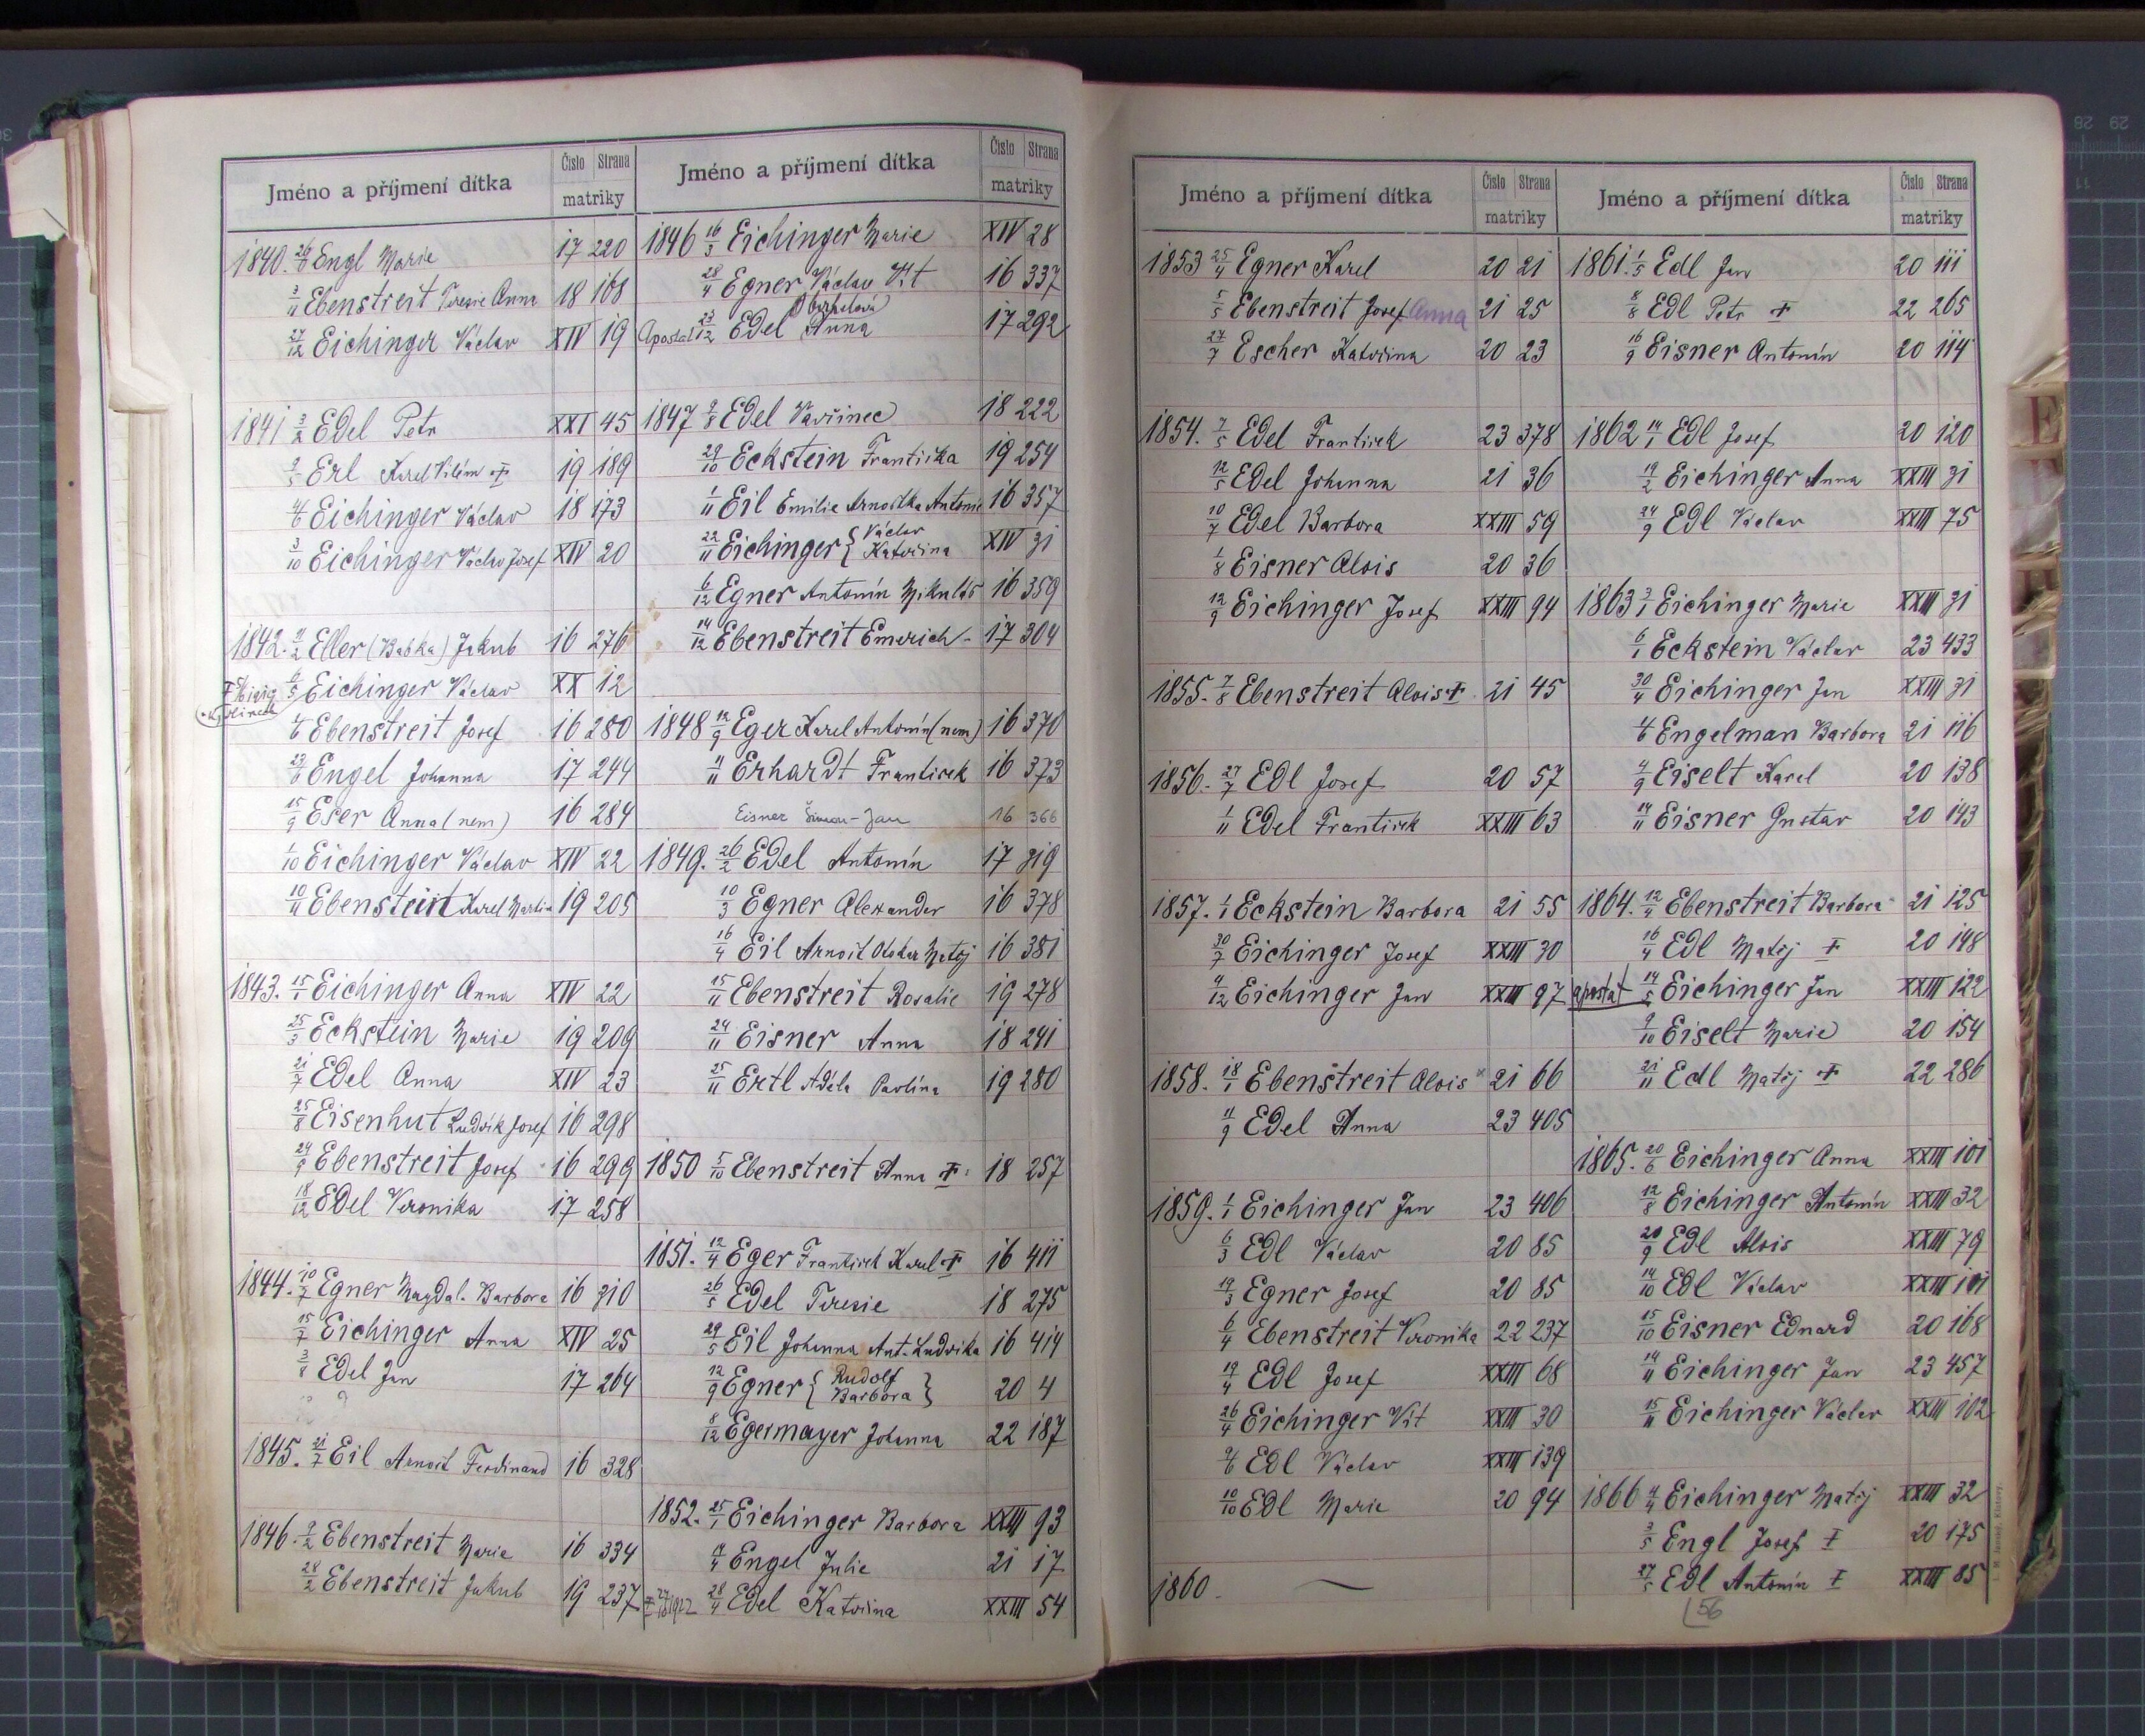 Jméno a příjmení dítka Číslo Strana matriky
1840. 26/6 Engl Marie 17 220
3/11 Ebenstreit Terezie Anna 18 168
27/12 Eichinger Václav XIV 19
1841 3/2 Edel Petr XXI 45
2/5 Erl Karel Vilém ✝ 19 189
4/6 Eichinger Václav 18 173
3/10 Eichinger Václav Josef XIV 20
1842. 11/2 Eller (Babka) Jakub 16 276
6/5 Eichinger Václav XX 12
4/6 Ebenstreit Josef 16 280
29/6 Engel Johanna 17 244
15/9 Eser Anna (nem) 16 284
1/10 Eichinger Václav XIV 22
10/11 Ebenstreit Karel Martin 19 205
1843. 15/1 Eichinger Anna XIV 22
25/3 Eckstein Marie 19 209
21/7 Edel Anna XIV 23
25/8 Eisenhut Ludvík Josef 16 298
24/9 Ebenstreit Josef 16 299
18/12 Edel Veronika 17 258
1844. 10/7 Egner Magdal. Barbora 16 310
15/7 Eichinger Anna XIV 25
3/8 Edel Jan 17 264
1845. 21/7 Eil Arnošt Ferdinand 16 328
1846. 2/2 Ebenstreit Marie 16 334
28/2 Ebenstreit Jakub 19 237
Jméno a příjmení dítka Číslo Strana matriky
1846 16/3 Eichinger Marie XIV 28
28/4 Egner Václav Vít 16 337
Apostat 23/12 Edel Anna 17 292
1847 9/8 Edel Vavřinec 18 222
29/10 Eckstein Františka 19 254
1/11 Eil Emilie Arnoštka Antonie 16 357
22/11 Eichinger { Václav
Kateřina XIV 31
6/12 Egner Antonín Mikuláš 16 359
14/12 Ebenstreit Emerich 17 304
1848 12/9 Eger Karel Antonín (nem) 16 370
11/11 Erhardt František 16 373
Eisner Šimon-Jan 16 366
1849. 26/2 Edel Antonín 17 319
10/3 Egner Alexander 16 378
16/4 Eil Arnošt Otokar Matěj 16 381
15/11 Ebenstreit Rosalie 19 278
24/11 Eisner Anna 18 241
25/11 Ertl Adéla Pavlína 19 280
1850 5/10 Ebenstreit Anna ✝ 18 257
1851. 12/4 Eger František Karel ✝ 16 411
26/5 Edel Terezie 18 275
29/5 Eil Johanna Ant. Ludvika 16 414
12/9 Egner { Rudolf
Barbora } 20 4
8/12 Egermayer Johanna 22 187
1852. 25/1 Eichinger Barbora XXIII 93
9/4 Engel Julie 21 17
28/4 Edel Kateřina XXIII 54
Jméno a příjmení dítka Číslo Strana matriky
1853 25/4 Egner Karel 20 21
5/5 Ebenstreit Josef Anna 21 25
27/7 Escher Kateřina 20 23
1854. 7/5 Edel František 23 378
12/5 Edel Johanna 21 36
10/7 Edel Barbora XXIII 59
1/8 Eisner Alois 20 36
12/9 Eichinger Josef XXIII 94
1855. 7/8 Ebenstreit Alois ✝ 21 45
1856. 27/7 Edl Josef 20 57
1/11 Edel František XXIII 63
1857. 1/1 Eckstein Barbora 21 55
30/7 Eichinger Josef XXIII 30
11/12 Eichinger Jan XXIII 97
1858. 18/1 Ebenstreit Alois 21 66
11/9 Edel Anna 23 405
1859. 1/1 Eichinger Jan 23 406
6/3 Edl Václav 20 85
19/3 Egner Josef 20 85
6/4 Ebenstreit Veronika 22 237
19/4 Edl Josef XXIII 68
26/4 Eichinger Vít XXIII 30
9/6 Edl Václav XXIII 139
10/10 Edl Marie 20 94
1860. —
Jméno a příjmení dítka Číslo Strana matriky
1861. 1/5 Edl Jan 20 111
8/8 Edl Petr ✝ 22 265
16/9 Eisner Antonín 20 114
1862 14/1 Edl Josef 20 120
19/2 Eichinger Anna XXIII 31
24/9 Edl Václav XXIII 75
1863 3/1 Eichinger Marie XXIII 31
6/1 Eckstein Václav 23 433
30/4 Eichinger Jan XXIII 31
4/6 Engelman Barbora 21 116
4/9 Eiselt Karel 20 138
14/11 Eisner Gustav 20 143
1864. 12/4 Ebenstreit Barbora 21 125
16/4 Edl Matěj ✝ 20 148
apostat 14/5 Eichinger Jan XXIII 122
9/10 Eiselt Marie 20 154
21/11 Edl Matěj ✝ 22 286
1865. 20/6 Eichinger Anna XXIII 101
12/8 Eichinger Antonín XXIII 32
20/9 Edl Alois XXIII 79
14/10 Edl Václav XXIII 101
15/10 Eisner Eduard 20 168
14/11 Eichinger Jan 23 457
15/11 Eichinger Václav XXIII 102
1866 4/4 Eichinger Matěj XXIII 32
3/5 Engl Josef ✝ 20 175
27/5 Edl Antonín ✝ XXIII 85
56
E